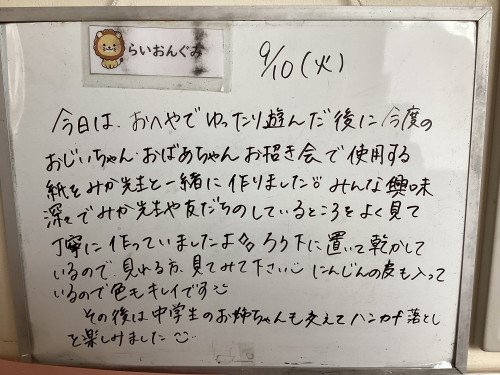 らいおんぐみ
9/10(火)
今日は、おへやでゆったり遊んだ後に今度の
おじいちゃん・おばあちゃんお招き会で使用する
紙をみか先生と一緒に作りました。みんな興味
深々でみか先生や友だちのしているところをよく見て
丁寧に作っていましたよ ろう下に置いて乾かして
いるので、見れる方、見てみて下さい にんじんの皮も入って
いるので色もキレイです
その後は中学生のお姉ちゃんも交えてハンカチ落とし
を楽しみました